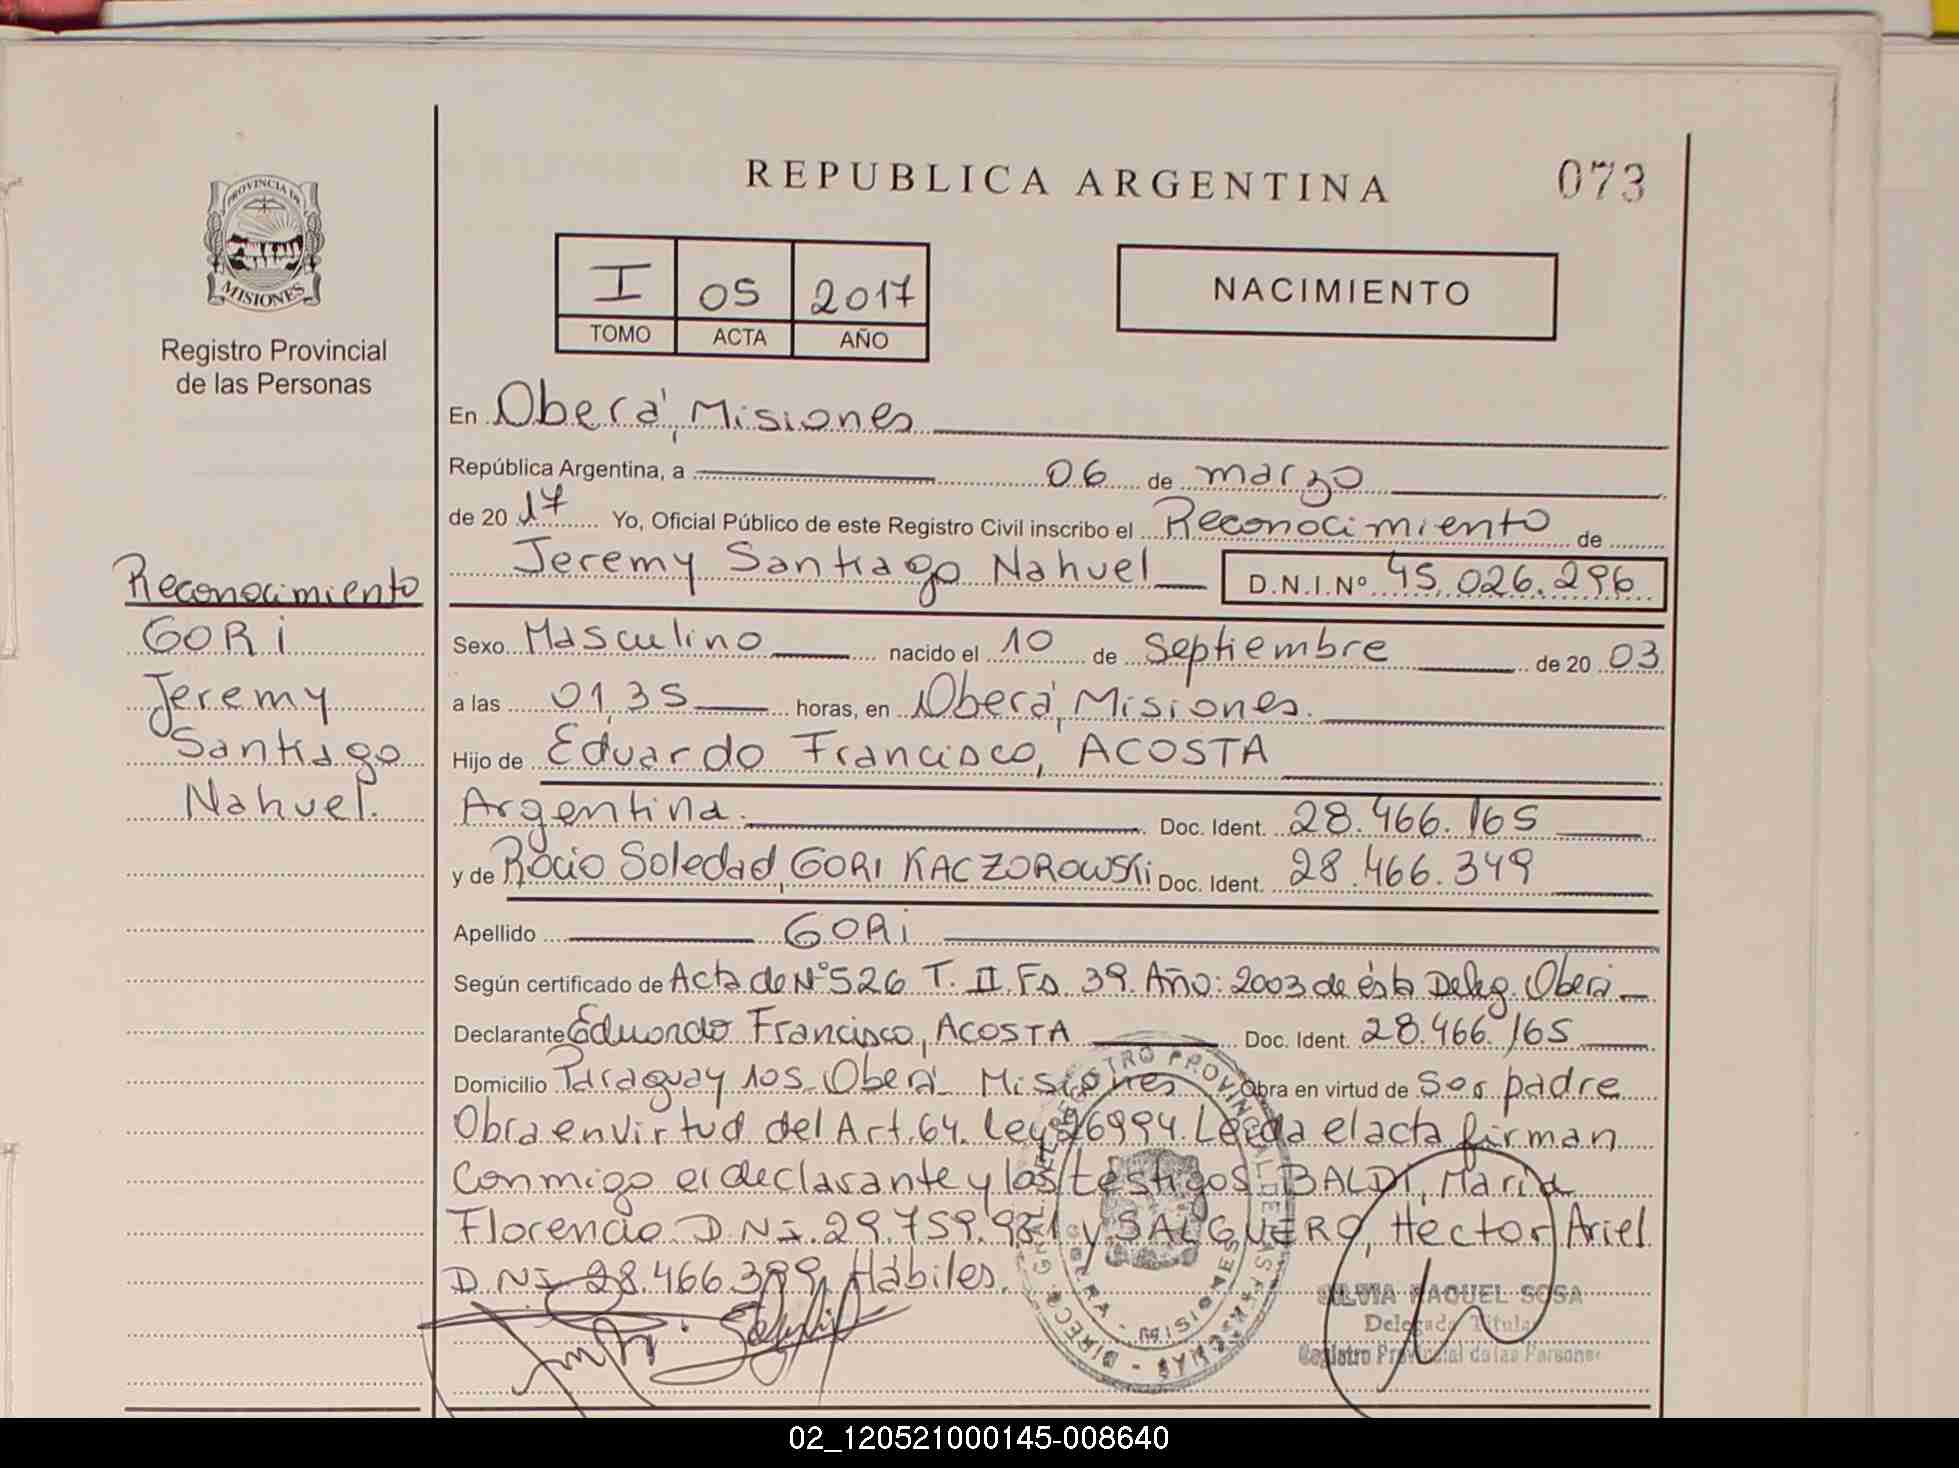 REPUBLICA ARGENTINA
073
PROVINCIA DE
MISIONES
Registro Provincial
de las Personas
I 05 2017
TOMO ACTA AÑO
NACIMIENTO
En Oberá, Misiones
República Argentina, a 06 de marzo
de 2017 Yo, Oficial Público de este Registro Civil inscribo el Reconocimiento de
Jeremy Santiago Nahuel D.N.I.Nº 45.026.296
Reconocimiento
GORI
Jeremy
Santiago
Nahuel.
Sexo Masculino nacido el 10 de Septiembre de 2003
a las 01,35 horas, en Oberá, Misiones.
Hijo de Eduardo Francisco, ACOSTA
Argentina. Doc. Ident. 28.466.165
y de Rocio Soledad, GORI KACZOROWSKI Doc. Ident. 28.466.349
Apellido GORI
Según certificado de Acta de Nº 526 T. II Fº 39. Año: 2003 de ésta Deleg. Oberá
Declarante Eduardo Francisco, ACOSTA Doc. Ident. 28.466.165
Domicilio Paraguay 105 Oberá Misiones Obra en virtud de Ser padre
Obra en virtud del Art. 64. Ley 26994. Leida el acta firman
Conmigo el declarante y los testigos BALDI, Maria
Florencia D.N.I. 29.759.981 y SALGUERO, Hector Ariel
D.N.I. 28.466.399. Hábiles.
SILVIA RAQUEL SOSA
Delegada Titular
Registro Provincial de las Personas
02_120521000145-008640